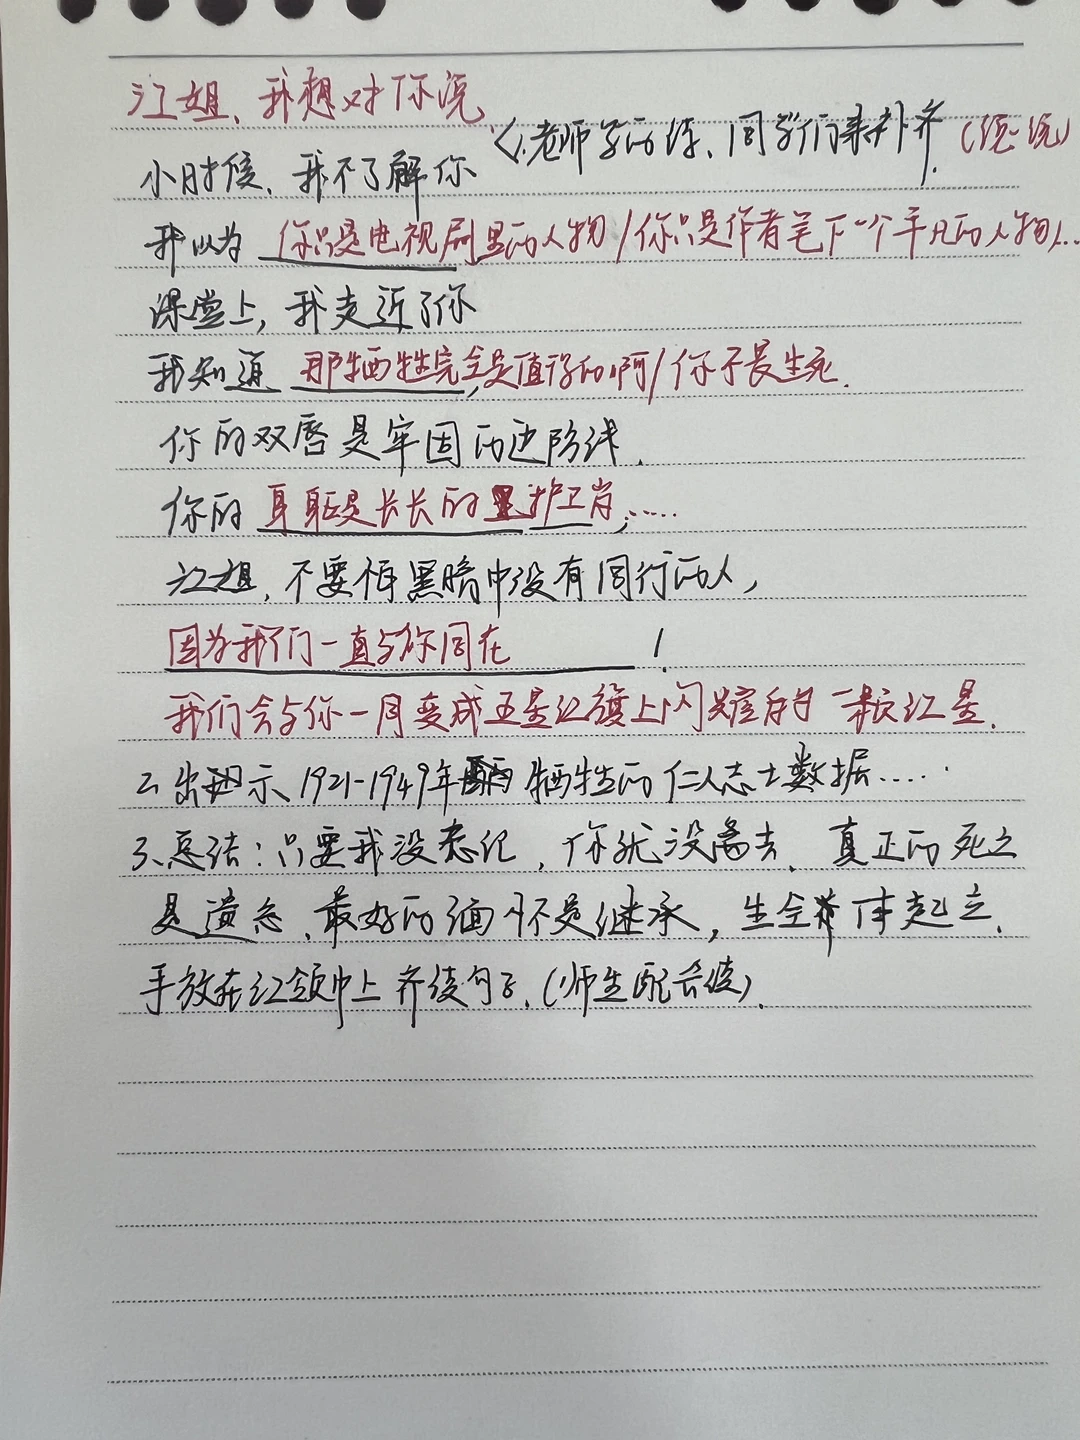 江姐、我想对你说
1.老师写的诗、同学们来补齐(读一读)
小时候、我不了解你
我以为 你只是电视剧里的人物/你只是作者笔下一个平凡的人物/...
课堂上,我走近了你
我知道 那牺牲完全是值得的啊/你不畏生死.
你的双唇是牢固的边防线.
你的 身躯是长长的 护卫岗;......
江姐,不要怕黑暗中没有同行的人,
因为我们一直与你同在 !
我们会与你一同变成五星红旗上闪耀的一颗红星.
2、出示、1921-1949年 牺牲的仁人志士数据......
3、总结:只要我没忘记,你就没离去、真正的死亡
是遗忘、最好的缅怀是继承,生全体起立、
手放在红领巾上齐读句子.(师生配合读).